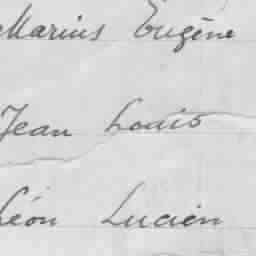 Marius Eugène
Jean Louis
Léon Lucien